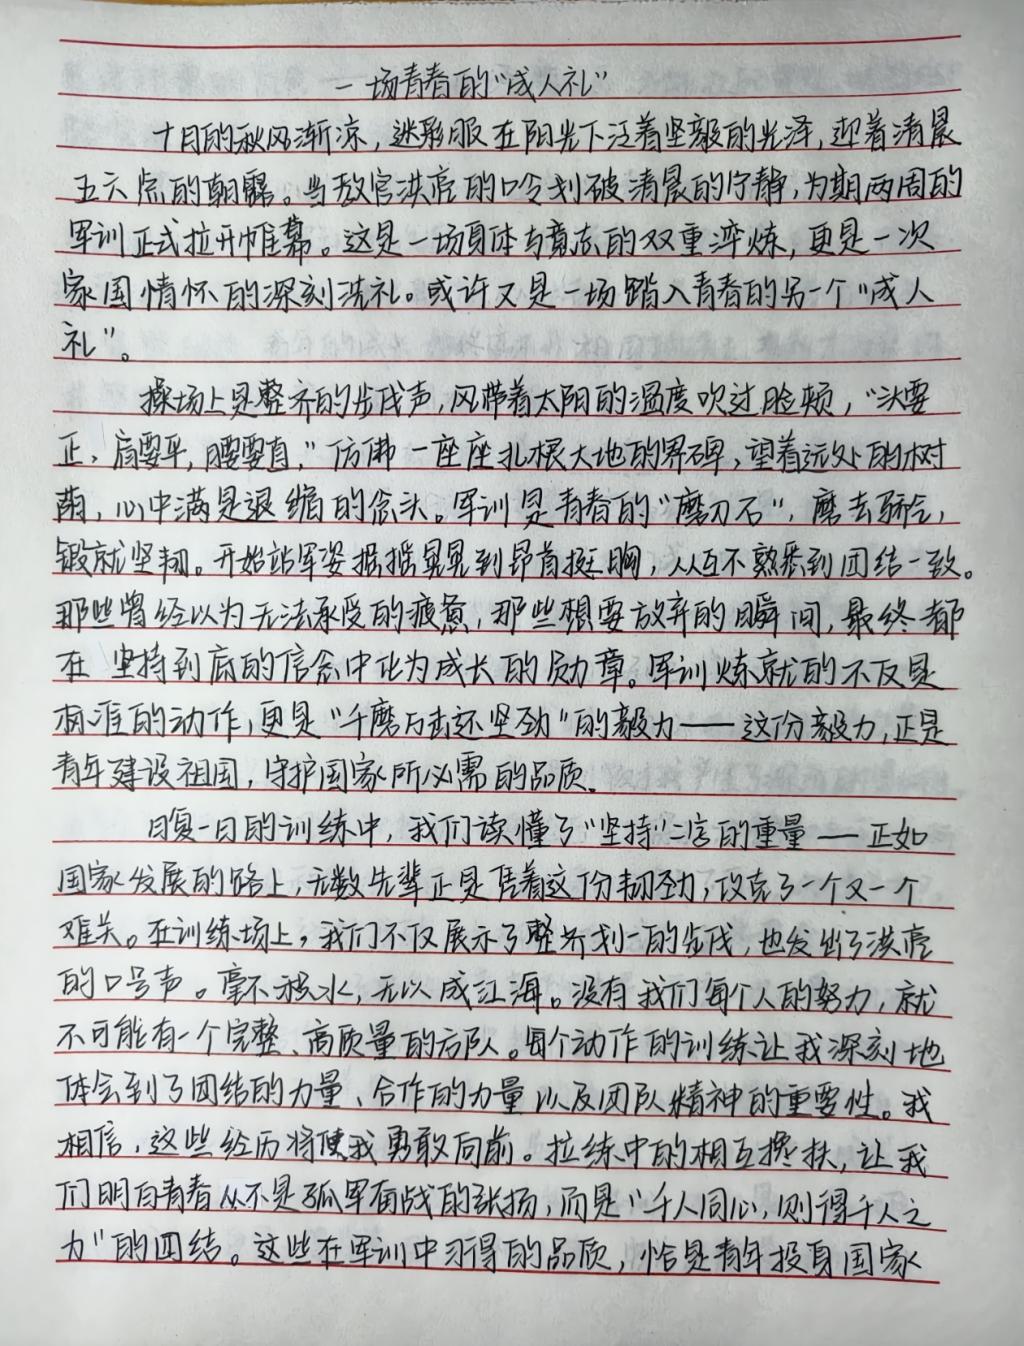 一场青春的“成人礼”
十月的秋风渐凉，迷彩服在阳光下泛着坚毅的光泽，迎着清晨
五六点的朝露。当教官洪亮的口令划破清晨的宁静，为期两周的
军训正式拉开帷幕。这是一场身体与意志的双重淬炼，更是一次
家国情怀的深刻洗礼。或许又是一场踏入青春的另一个“成人
礼”。
操场上是整齐的步伐声，风带着太阳的温度吹过脸颊，“头要
正，肩要平，腰要直，”仿佛一座座扎根大地的界碑，望着远处的树
荫，心中满是退缩的念头。军训是青春的“磨刀石”，磨去骄气，
锻就坚韧。开始站军姿摇摇晃晃到昂首挺胸，从互不熟悉到团结一致。
那些曾经以为无法承受的疲惫，那些想要放弃的瞬间，最终都
在坚持到底的信念中化为成长的勋章。军训炼就的不仅是
标准的动作，更是“千磨万击还坚劲”的毅力——这份毅力，正是
青年建设祖国，守护国家所必需的品质。
日复一日的训练中，我们读懂了“坚持”二字的重量——正如
国家发展的路上，无数先辈正是凭着这份韧劲，攻克了一个又一个
难关。在训练场上，我们不仅展示了整齐划一的步伐，也发出了洪亮
的口号声。毫不积水，无以成江海。没有我们每个人的努力，就
不可能有一个完整、高质量的方队。每个动作的训练让我深刻地
体会到了团结的力量、合作的力量以及团队精神的重要性。我
相信，这些经历将使我勇敢向前。拉练中的相互搀扶，让我
们明白青春从不是孤军奋战的张扬，而是“千人同心，则得千人之
力”的团结。这些在军训中习得的品质，恰是青年投身国家